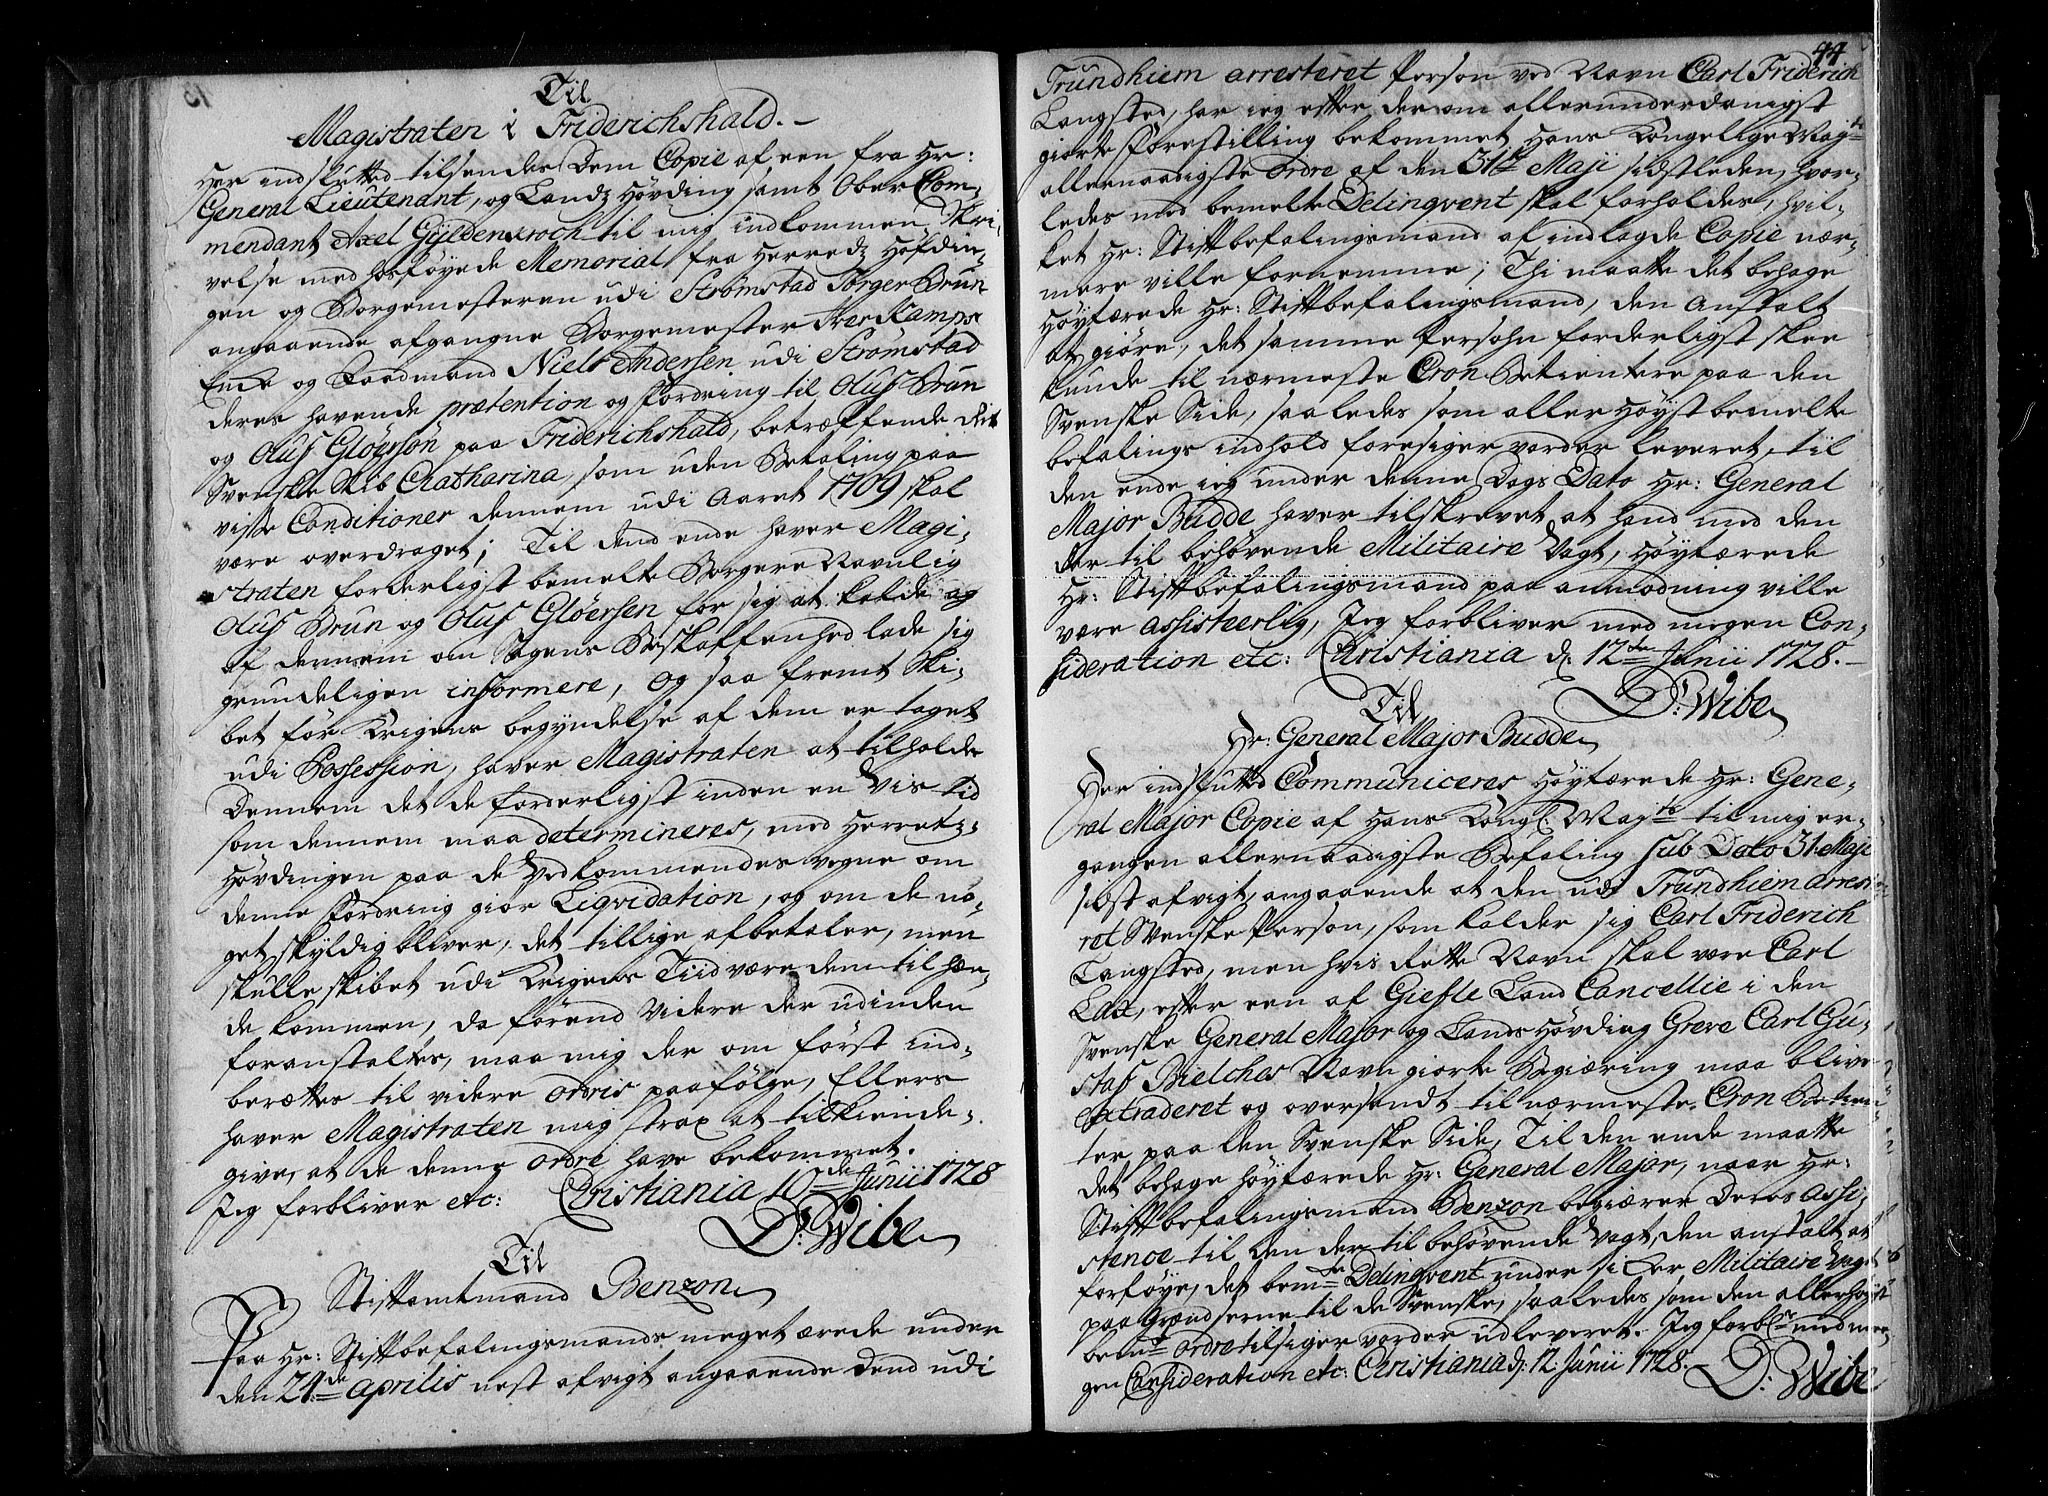 Til
Magistraten i Friderichshald.
Her indslutted tilsendes Dem Copie af een fra Hr:
General Lieutenant, og Landz Høvding samt Ober Com-
mendant Axel Gyldenkroch til mig indkommen Skri-
velse med hosføyede Memorial fra Herredz Høfdin-
gen og Borgemesteren udi Strømstad Torger Brun
angaaende afgangne Borgemester Iver Kamps
Encke og Raadmand Niels Andersen udi Strømstad
deres havende prætention og fordring til Oluf Brun
og Oluf Gløersøn paa Friderichshald, betræffende det
Svenske Skib Chatharina, som uden Betaling paa
visse Conditioner dennem udi Aaret 1709 skal
være overdraget; Til dend ende haver Magi-
straten forderligst bemelte Borgere Navnlig
Oluf Brun og Oluf Gløersen for sig at kalde og
af dennem om Sagens Beskaffenhed lade sig
grundeligen informere, og saa fremt Ski-
bet før Krigens begyndelse af dem er taget
udi Possession, haver Magistraten at tilholde
Dennem det de forderligst inden en Vis tid
som dennem maa determineres, med Herretz-
Høvdingen paa de Vedkommendes vegne om
denne Fordring giør Liqvidation, og om de no-
get skyldig bliver, det tillige afbetaler, men
skulle skibet udi Krigens Tiid være dem til hæn-
de kommen, da førend Videre der udinden
foranstaltes, maa mig der om først ind-
berættes til videre ordris paafølge, Ellers
haver Magistraten mig strax at tilkiende-
give, at de denne ordre have bekommet.
Jeg forbliver etc: Christiania 10de Junii 1728
D: Wibe
Til
Stiftamtmand Benzon
Paa Hr: Stiftbefalingsmands meget ærede under
den 24de aprilis nest afvigt angaaende dend udi
44
Trundhiem arresteret Person ved Navn Carl Friderich
Langsted, har ieg efter der om allerunderdanigst
giorte Forestilling bekommet Hans Kongelige Mayts
allernaadigste ordre af den 31te Maji sidstleden, hvor-
ledes med bemelte Delinqvent skal forholdes, hvil-
ket Hr: Stiftbefalingsmand af indlagde Copie nær-
mere ville fornemme; Thi maatte det behage
Høyærede Hr: Stiftbefalingsmand, den Anstalt
at giøre, det samme Persohn forderligst skee
kunde til nærmeste Cron Betientere paa den
Svenske Side, saaledes som aller Høyst bemelte
befalings indhold foresiger vorder leveret, til
den ende ieg under denne Dags Dato Hr: General
Major Budde haver tilskrevet, at hand med den
der til behøvende Militaire Vagt, Høyærede
Hr: Stiftbefalingsmand paa anmodning ville
være assisteerlig, Jeg forbliver med megen Con-
sideration etc: Christiania d: 12te Junii 1728.
D: Wibe
Til
Hr: General Major Budde
Her indslutted Communiceres Høyærede Hr: Gene-
ral Major Copie af Hans Kongl: Mayts til mig er-
gangen allernaadigste Befaling sub Dato 31. Maji
sidst afvigt, angaaende at den udi Trundhiem arreste-
ret Svenske Person, som kalder sig Carl Friderich
Langsted, men hvis Rette Navn skal være Carl
Lax, efter een af Giefle Land Cancellie i den
Svenske General Major og Lands Høvding Greve Carl Gu-
staf Bielches Navn giorte Begiæring maa blive
extraderet og oversendt til nærmeste Cron Betien-
ter paa den Svenske Side, Til den ende maatte
det behage Høyærede Hr: General Major, naar Hr:
Stiftbefalingsmand Benzon begiærer Deres Assi-
stence til den der til behøvende Vagt, den anstalt at
forføye, det bemte Delinqvent under sicker Militaire Vagt
paa Grændserne til de Svenske, saaledes som den allerhøyst
bemte ordre tilsiger vorder udleveret. Jeg forblr med me-
gen Consideration etc: Christiania d: 12. Junii 1728.
D: Wibe